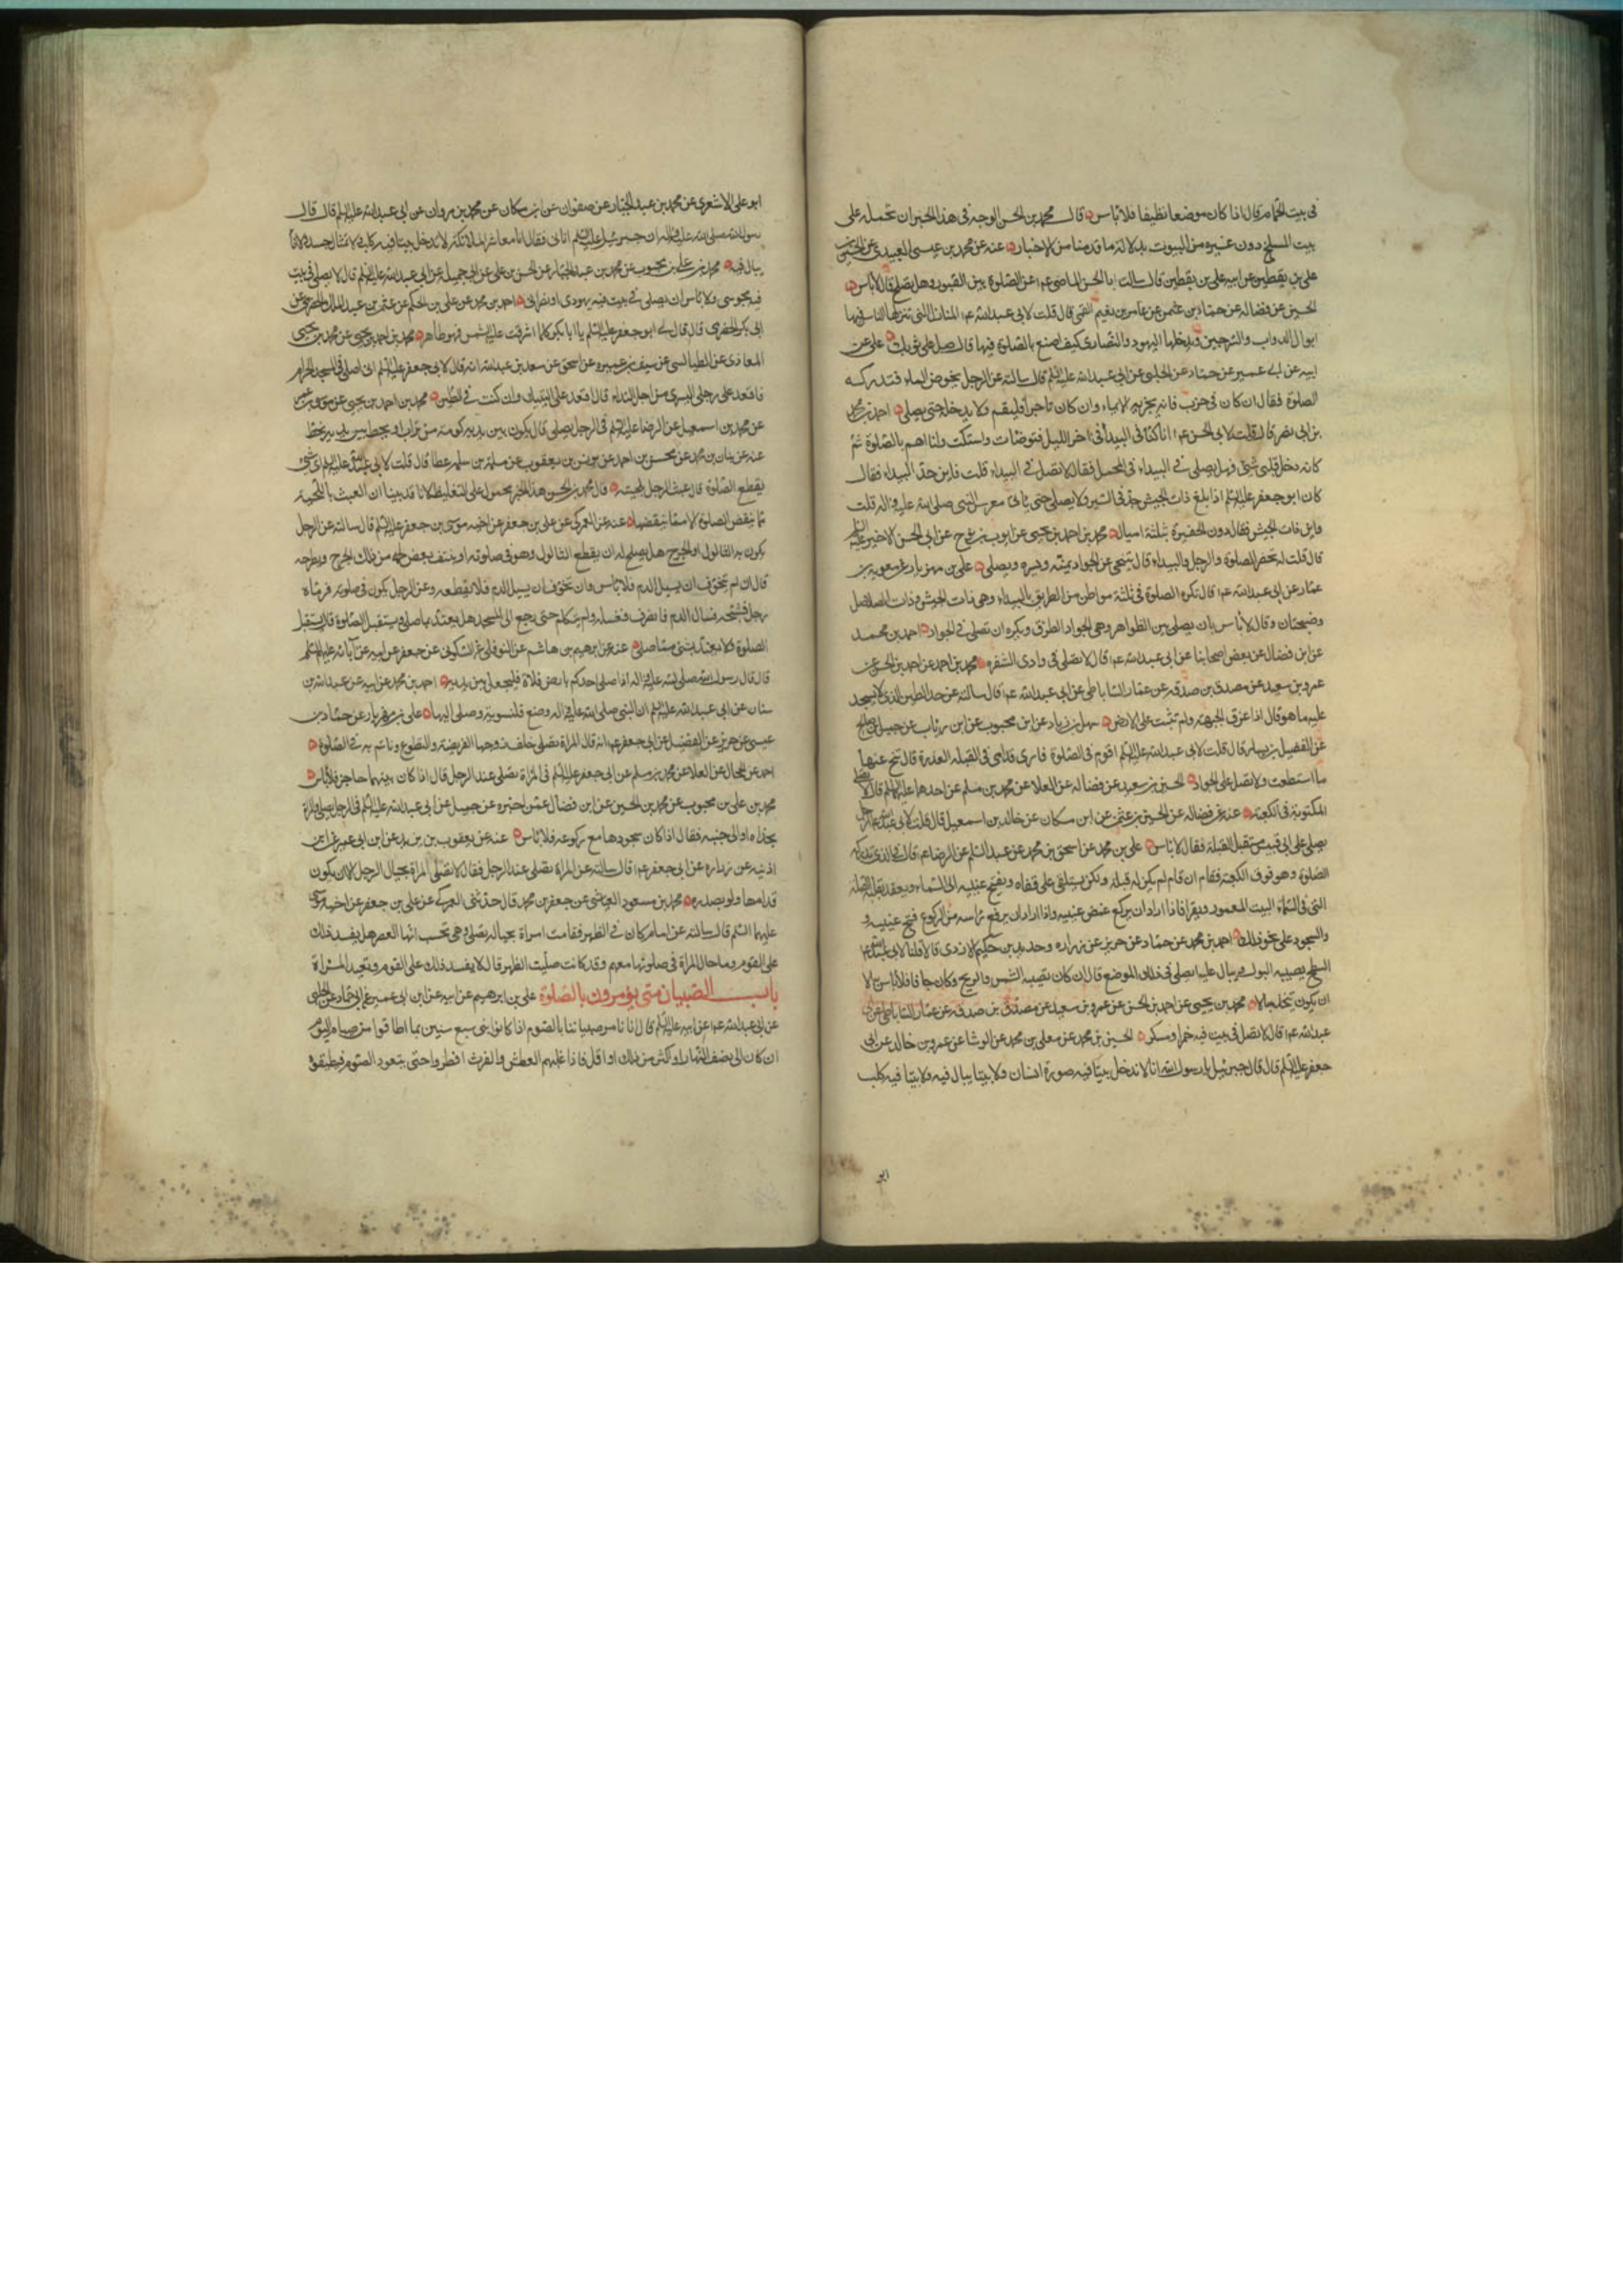 في بيت الحمام قال اذا كان موضعا نظيفا فلا باس قال محمد بن الحسن الوجه في هذا الخبر ان نحمله على
بيت المسلخ دون غيره من البيوت بدلالة ما قدمنا من الاخبار عنه عن محمد بن عيسى العبيدي عن الحسن بن
علي بن يقطين عن ابيه علي بن يقطين قال سالت ابا الحسن الماضي عم عن الصلوة بين القبور وهل يصلح قال لا باس
الحسين عن فضالة عن حماد بن عثمن عن عامر بن نعيم القمي قال قلت لابي عبدالله عم المنازل التي تنزلها الناس فيها
ابوال الدواب والسرجين ويدخلها اليهود والنصارى كيف اصنع بالصلوة فيها قال صل على ثوبك علي عن
ابيه عن ابن ابي عمير عن حماد عن الحلبي عن ابي عبدالله عليه السلم قال سالته عن الرجل يخوض الماء فتدركه
الصلوة فقال ان كان في حرب فانه يجزيه الايماء وان كان تاجرا فليقم ولا يدخله حتى يصلي احمد بن محمد
بن ابي نصر قال قلت لابي الحسن عم انا كنا في البيداء في اخر الليل فتوضات واستكت وانا اهم بالصلوة ثم
كانه دخل قلبي شئ فهل يصلى في البيداء في المحمل فقال لا تصل في البيداء قلت فاين حد البيداء فقال
كان ابو جعفر عليه السلم اذا بلغ ذات الجيش جد في السير ولا يصلي حتى ياتي معرس النبي صلى الله عليه واله قلت
واين ذات الجيش فقال دون الحفيرة بثلثة اميال محمد بن احمد بن يحيى عن ايوب بن نوح عن ابي الحسن الاخير عليه السلم
قال قلت له تحضر الصلوة والرجل بالبيداء قال يتنحى عن الجواد يمنة ويسرة ويصلي علي بن مهزيار عن معوية بن
عمار عن ابي عبدالله عم قال تكره الصلوة في ثلثة مواطن من الطريق بالبيداء وهي ذات الجيش وذات الصلاصل
وضجنان وقال لا باس بان يصلى بين الظواهر وهي الجواد الطرق ويكره ان تصلي في الجواد احمد بن محمد
عن ابن فضال عن بعض اصحابنا عن ابي عبدالله عم قال لا تصلي في وادي الشقرة محمد بن احمد عن احمد بن الحسن عن
عمرو بن سعيد عن مصدق بن صدقة عن عمار الساباطي عن ابي عبدالله عم قال سالته عن حد الطين الذي لا يسجد
عليه ما هو قال اذا غرق الجبهة ولم تثبت على الارض سهل بن زياد عن ابن محبوب عن ابن رئاب عن جميل بن صالح
عن الفضيل بن يسار قال قلت لابي عبدالله عليه السلم اقوم في الصلوة فارى قدامي في القبلة العذرة قال تنح عنها
ما استطعت ولا تصل على الجواد الحسين بن سعيد عن فضالة عن العلا عن محمد بن مسلم عن احدهما عليهما السلم قال لا تصلي
المكتوبة في الكعبة عنه عن فضالة عن الحسين بن عثمن عن ابن مسكان عن خالد بن اسمعيل قال قلت لابي عبدالله عم الرجل
يصلي على ابي قبيس مستقبل القبلة فقال لا باس علي بن محمد عن اسحق بن محمد عن عبد السلم عن الرضا عم قال في الذي تدركه
الصلوة وهو فوق الكعبة فقام ان قام لم يكن له قبلة ولكن يستلقي على قفاه ويفتح عينيه الى السماء ويعقد بقلبه القبلة
التي في السماء البيت المعمور ويقرا فاذا اراد ان يركع غمض عينيه واذا اراد ان يرفع راسه من الركوع فتح عينيه و
والسجود على نحو ذلك احمد بن محمد عن حماد عن حريز عن زرارة وحديد بن حكيم الازدي قالا قلنا لابي عبدالله عم
السطح يصيبه البول ويبال عليه ايصلى في ذلك الموضع قال ان كان تصيبه الشمس والريح وكان جافا فلا باس به الا
ان يكون يتخذ مبالا محمد بن يحيى عن احمد بن الحسن عن عمرو بن سعيد عن مصدق بن صدقة عن عمار الساباطي عن ابي
عبدالله عم قال لا تصل في بيت فيه خمر او مسكر الحسين بن محمد عن معلى بن محمد عن الوشا عن عمرو بن خالد عن ابي
جعفر عليه السلم قال قال جبرئيل يا رسول الله انا لا ندخل بيتا فيه صورة انسان ولا بيتا يبال فيه ولا بيتا فيه كلب
ابو
ابو علي الاشعري عن محمد بن عبد الجبار عن صفوان عن ابن مسكان عن محمد بن مروان عن ابي عبدالله عليه السلم قال قال
رسول الله صلى الله عليه واله ان جبرئيل عليه السلم اتاني فقال انا معاشر الملائكة لا ندخل بيتا فيه كلب ولا تمثال جسد ولا اناء
يبال فيه محمد بن علي بن محبوب عن محمد بن عبد الجبار عن الحسن بن علي عن ابي جميلة عن ابي عبدالله عليه السلم قال لا يصلى في بيت
فيه مجوسي ولا باس ان يصلى في بيت فيه يهودي او نصراني احمد بن محمد عن علي بن الحكم عن عثمن بن عبد الملك الحضرمي عن
ابي بكر الحضرمي قال قال لي ابو جعفر عليه السلم يا ابا بكر كلما اشرقت عليه الشمس فهو طاهر محمد بن احمد بن يحيى عن محمد بن يحيى
المعاذي عن الطيالسي عن سيف بن عميرة عن اسحق عن سعد بن عبدالله انه قال لابي جعفر عليه السلم اني اصلي في المسجد الحرام
فاقعد على رجلي اليسرى من اجل النداء قال اقعد على اليتيك وان كنت في الطين محمد بن احمد بن يحيى عن
عن محمد بن اسمعيل عن الرضا عليه السلم في الرجل يصلي قال يكون بين يديه كومة من تراب او يخط بين يديه بخط
عنه عن بنان بن محمد عن محسن بن احمد عن يونس بن يعقوب عن مسلمة بن عطا قال قلت لابي عبدالله عليه السلم اي شئ
يقطع الصلوة قال عبث الرجل بلحيته قال محمد بن الحسن هذا الخبر محمول على التغليظ لانا قد بينا ان العبث باللحية
مما ينقص الصلوة لا مما ينقضها عنه عن العمركي عن علي بن جعفر عن اخيه موسى بن جعفر عليه السلم قال سالته عن الرجل
يكون به الثالول او الجرح هل يصلح له ان يقطع الثالول وهو في صلوته او ينتف بعض لحمه من ذلك الجرح ويطرحه
قال ان لم يتخوف ان يسيل الدم فلا باس وان تخوف ان يسيل الدم فلا تقطعه وعن الرجل يكون في صلوته فرماه
رجل فشجه فسال الدم فانصرف فغسله ولم يتكلم حتى رجع الى المسجد هل يعتد بما صلى او يستقبل الصلوة قال يستقبل
الصلوة ولا يعتد بشئ مما صلى عنه عن ابرهيم بن هاشم عن النوفلي عن السكوني عن جعفر عن ابيه عن آبائه عليهم السلم
قال قال رسول الله صلى الله عليه واله اذا صلى احدكم بارض فلاة فليجعل بين يديه احمد بن محمد عن ابيه عن عبدالله بن
سنان عن ابي عبدالله عليه السلم ان النبي صلى الله عليه واله وضع قلنسوته وصلى اليها علي بن مهزيار عن حماد بن
عيسى عن حريز عن الفضيل عن ابي جعفر عم انه قال المراة تصلي خلف زوجها الفريضة والتطوع وتاتم به في الصلوة
احمد عن الحجال عن العلا عن محمد بن مسلم عن ابي جعفر عليه السلم في المراة تصلي عند الرجل قال اذا كان بينهما حاجز فلا باس
محمد بن علي بن محبوب عن محمد بن الحسين عن ابن فضال عمن اخبره عن جميل عن ابي عبدالله عليه السلم في الرجل يصلي والمراة
بحذاه او الى جنبيه فقال اذا كان سجودها مع ركوعه فلا باس عنه عن يعقوب بن يزيد عن ابن ابي عمير عن ابن
اذينة عن زرارة عن ابي جعفر عم قال سالته عن المراة تصلي عند الرجل فقال لا تصلي المراة بحيال الرجل الا ان يكون
قدامها ولو بصدره محمد بن مسعود العياشي عن جعفر بن محمد قال حدثني العمركي عن علي بن جعفر عن اخيه موسى
عليهما السلم قال سالته عن امام كان في الظهر فقامت امراة بحياله تصلي وهي تحسب انها العصر هل يفسد ذلك
على القوم وما حال المراة في صلوتها معهم وقد كانت صلت الظهر قال لا يفسد ذلك على القوم وتعيد المراة
باب الصبيان متى يؤمرون بالصلوة علي بن ابرهيم عن ابيه عن ابن ابي عمير عن حماد عن الحلبي
عن ابي عبدالله عم عن ابيه عليه السلم قال انا نامر صبياننا بالصوم اذا كانوا بني سبع سنين بما اطاقوا من صيام اليوم
ان كان الى نصف النهار او اكثر من ذلك او اقل فاذا غلبهم العطش والغرث افطروا حتى يتعود الصوم فيطيقوه